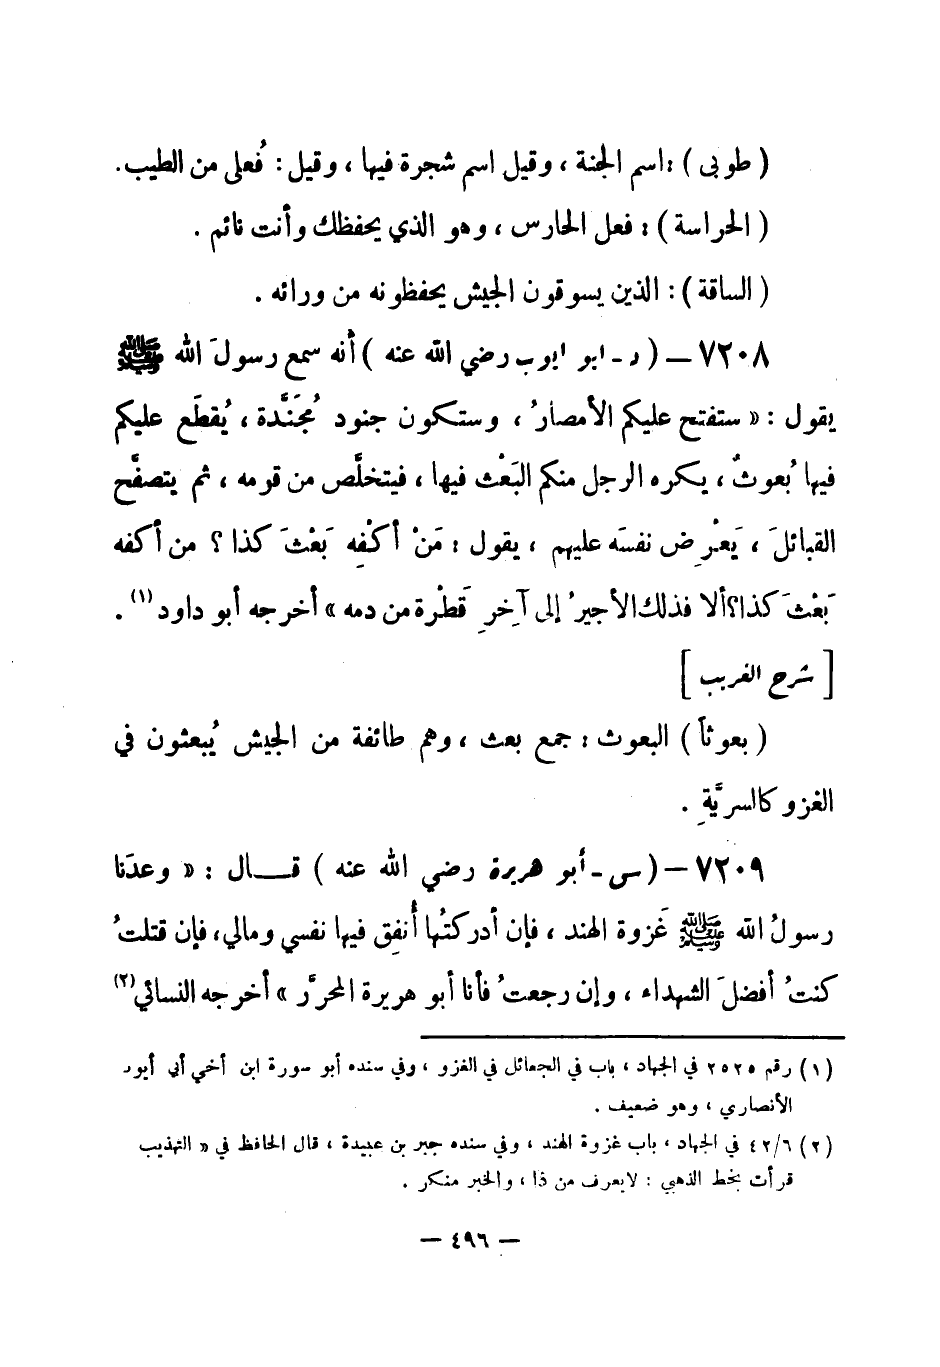 ( طوبى ) : اسم الجنة ، وقيل اسم شجرة فيها ، وقيل : فُعلى من الطيب .
( الحراسة ) : فعل الحارس ، وهو الذي يحفظك وأنت نائم .
( الساقة ) : الذين يسوقون الجيش يحفظونه من ورائه .
٧٢٠٨ – ( د - ابو ايوب رضي الله عنه ) أنه سمع رسولَ الله ﷺ
يقول : « ستفتح عليكم الأمصارُ ، وستكون جنود مُجَنَّدة ، يُقطَع عليكم
فيها بُعوثٌ ، يكره الرجل منكم البَعْث فيها ، فيتخلَّص من قومه ، ثم يتصفَّح
القبائلَ ، يَعْرِض نفسَه عليهم ، يقول : مَنْ أكْفِه بَعْثَ كذا ؟ من أكفه
بَعْثَ كذا؟ ألا فذلك الأجيرُ إلى آخِرِ قَطْرة من دمه » أخرجه أبو داود (١) .
[ شرح الغريب ]
( بعوثاً ) البعوث : جمع بعث ، وهم طائفة من الجيش يُبعثون في
الغزو كالسريَّةِ .
٧٢٠٩ – ( س - أبو هريرة رضي الله عنه ) قــال : « وعدَنا
رسولُ الله ﷺ غَزوة الهند ، فإن أدركتُها أُنفِق فيها نفسي ومالي ، فإن قتلتُ
كنتُ أفضلَ الشهداء ، وإن رجعتُ فأنا أبو هريرة المحرَّر » أخرجه النسائي (٢)
(١) رقم ٢٥٢٥ في الجهاد ، باب في الجعائل في الغزو ، وفي سنده أبو سورة ابن أخي أبي أيوب
الأنصاري ، وهو ضعيف .
(٢) ٤٢/٦ في الجهاد ، باب غزوة الهند ، وفي سنده جبر بن عبيدة ، قال الحافظ في « التهذيب
قرأت بخط الذهبي : لايعرف من ذا ، والخبر منكر .
– ٤٩٦ –